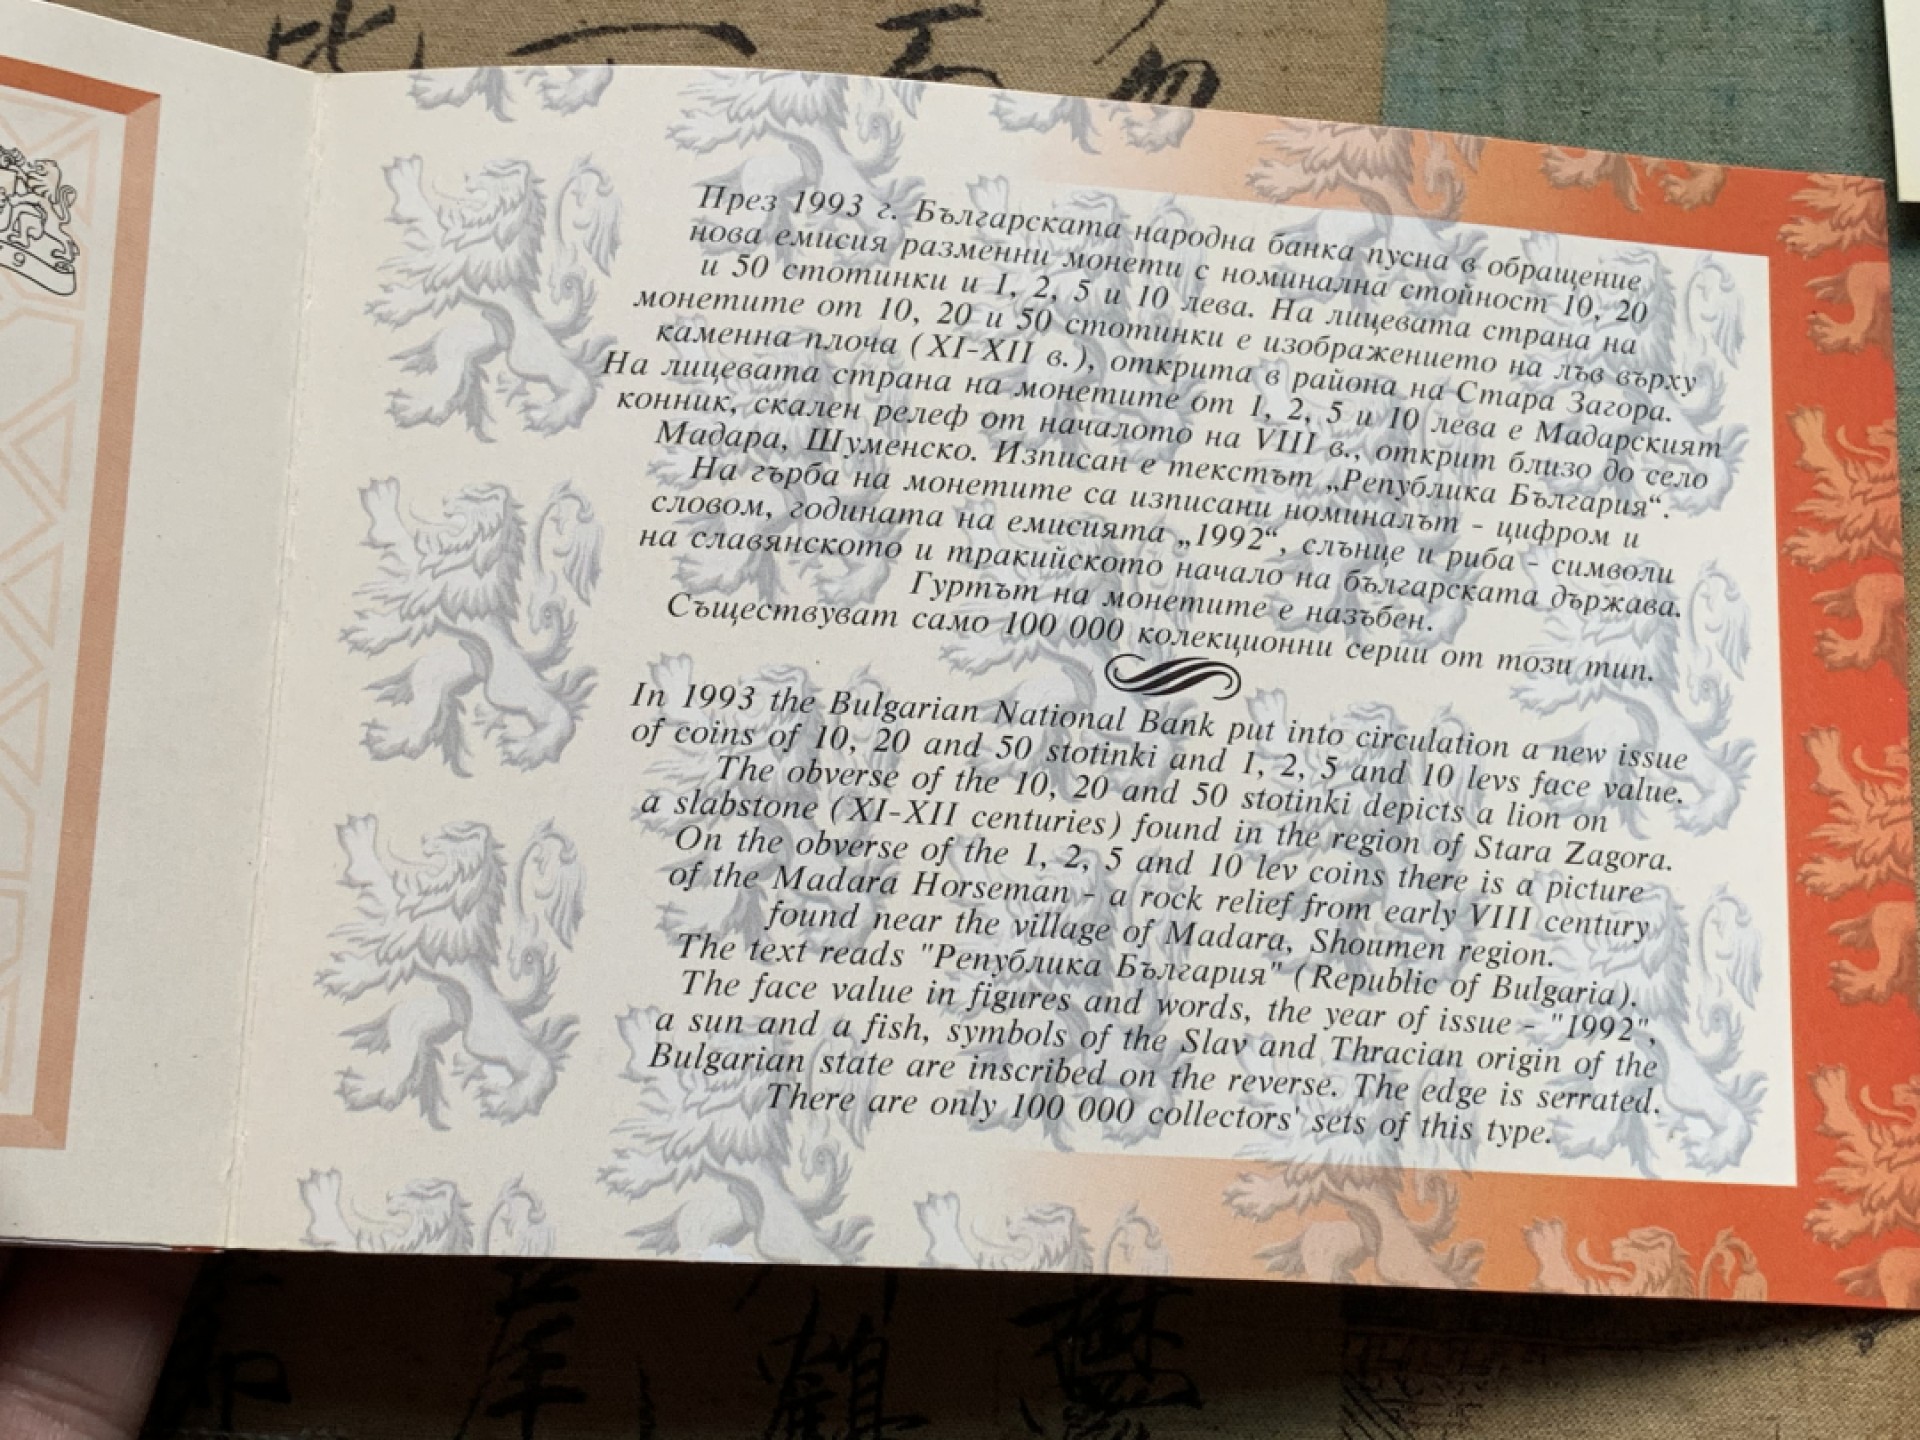 През 1993 г. Българската народна банка пусна в обращение
нова емисия разменни монети с номинална стойност 10, 20
и 50 стотинки и 1, 2, 5 и 10 лева. На лицевата страна на
монетите от 10, 20 и 50 стотинки е изображението на лъв върху
каменна плоча (XI-XII в.), открита в района на Стара Загора.
На лицевата страна на монетите от 1, 2, 5 и 10 лева е Мадарският
конник, скален релеф от началото на VIII в., открит близо до село
Мадара, Шуменско. Изписан е текстът „Република България“.
На гърба на монетите са изписани номиналът - цифром и
словом, годината на емисията „1992“, слънце и риба - символи
на славянското и тракийското начало на българската държава.
Гуртът на монетите е назъбен.
Съществуват само 100 000 колекционни серии от този тип.
In 1993 the Bulgarian National Bank put into circulation a new issue
of coins of 10, 20 and 50 stotinki and 1, 2, 5 and 10 levs face value.
The obverse of the 10, 20 and 50 stotinki depicts a lion on
a slabstone (XI-XII centuries) found in the region of Stara Zagora.
On the obverse of the 1, 2, 5 and 10 lev coins there is a picture
of the Madara Horseman - a rock relief from early VIII century
found near the village of Madara, Shoumen region.
The text reads "Република България" (Republic of Bulgaria).
The face value in figures and words, the year of issue - "1992",
a sun and a fish, symbols of the Slav and Thracian origin of the
Bulgarian state are inscribed on the reverse. The edge is serrated.
There are only 100 000 collectors' sets of this type.